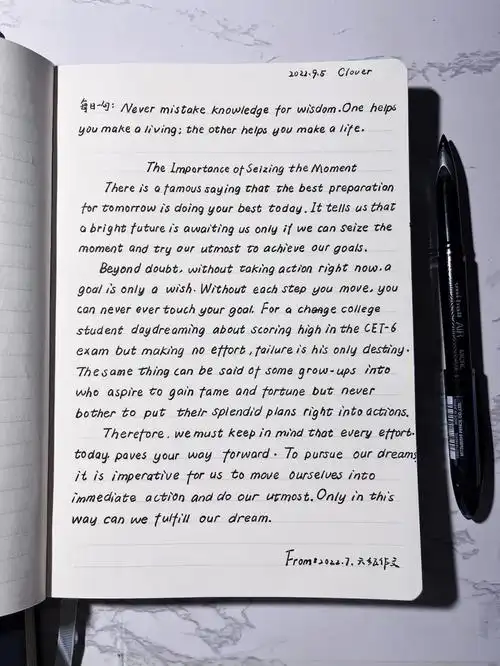 2022.9.5 Clover
每日一句: Never mistake knowledge for wisdom. One helps
you make a living; the other helps you make a life.
The Importance of Seizing the Moment
There is a famous saying that the best preparation
for tomorrow is doing your best today. It tells us that
a bright future is awaiting us only if we can seize the
moment and try our utmost to achieve our goals.
Beyond doubt, without taking action right now, a
goal is only a wish. Without each step you move, you
can never ever touch your goal. For a change college
student daydreaming about scoring high in the CET-6
exam but making no effort, failure is his only destiny.
The same thing can be said of some grow-ups into
who aspire to gain fame and fortune but never
bother to put their splendid plans right into actions.
Therefore, we must keep in mind that every effort
today paves your way forward. To pursue our dreams
it is imperative for us to move ourselves into
immediate action and do our utmost. Only in this
way can we fulfill our dream.
From:2022.7.六级作文
uni-ball AIR